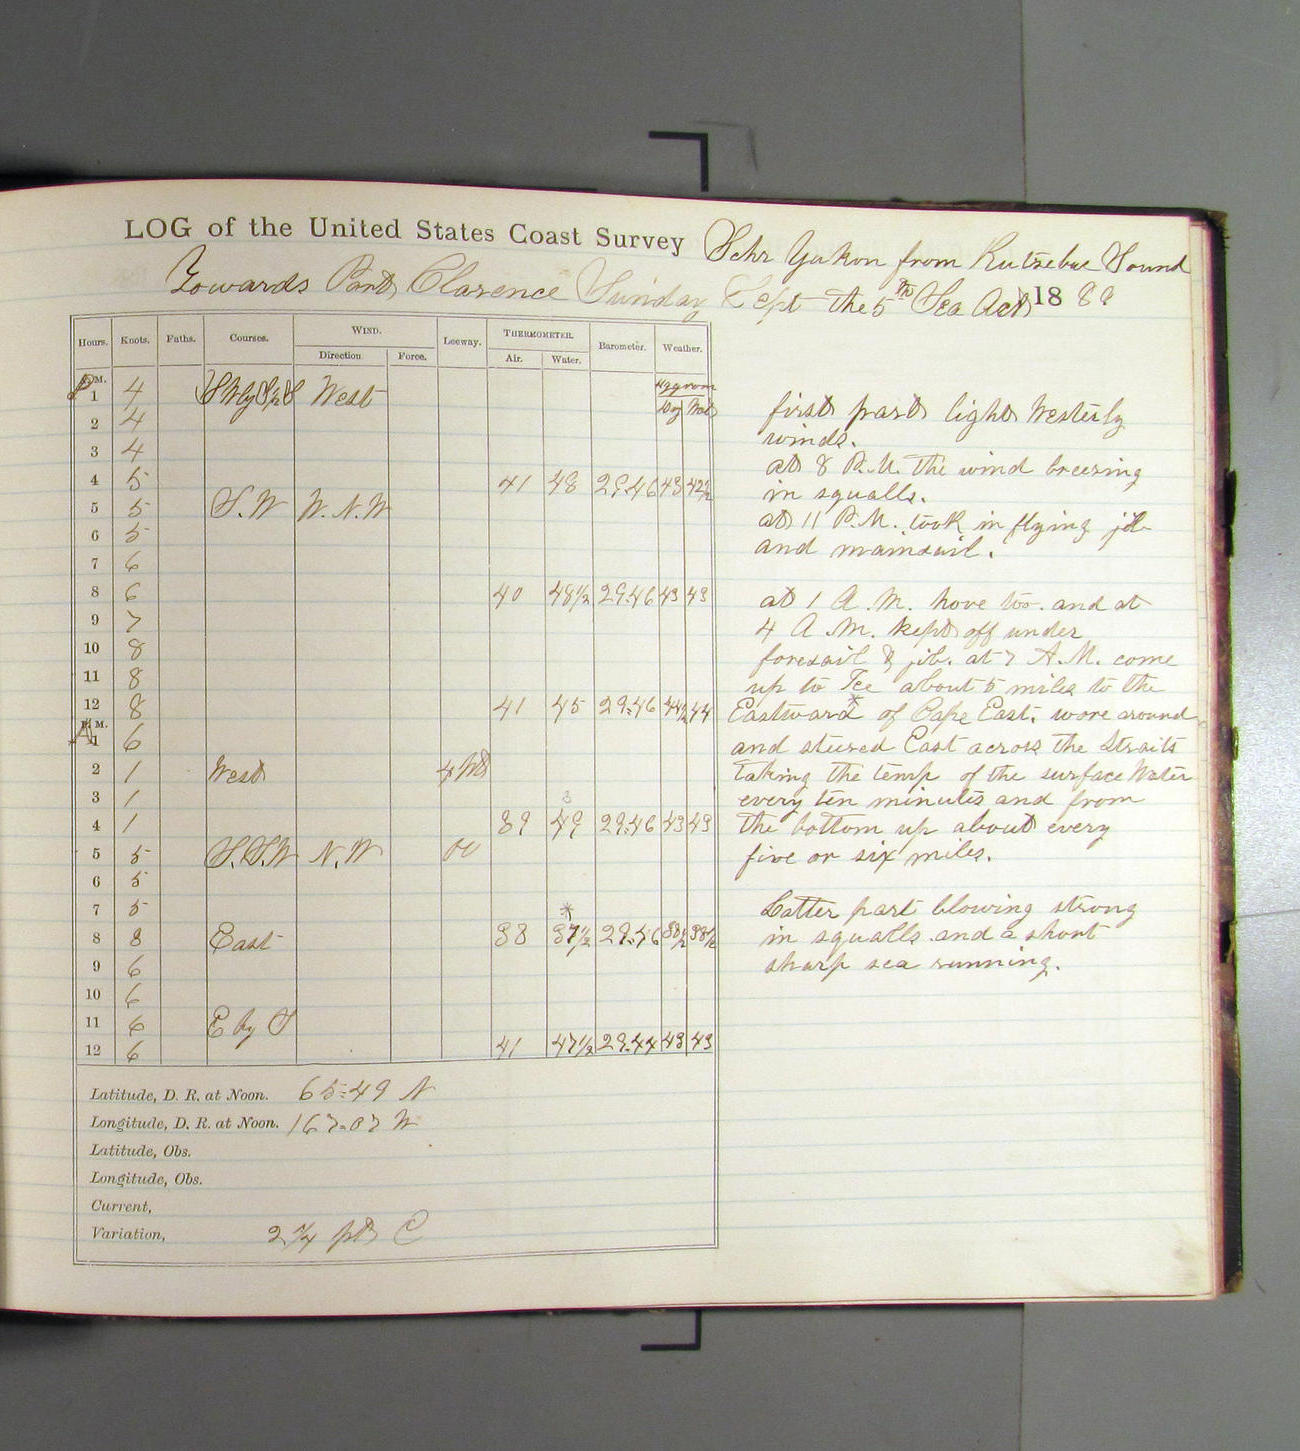 LOG of the United States Coast Survey Schr Yukon from Kutzebue Sound
Towards Port Clarence Sunday Sept the 5th Sea Act 1880
Hours. Knots. Faths. Courses. WIND. Leeway. THERMOMETER. Barometer. Weather.
Direction Force. Air. Water.
P M.
1 4 West
Dry Wet
2 4
3 4
4 5 41 48 29.46 43 42½
5 5 S.W W.N.W
6 5
7 6
8 6 40 48½ 29.46 43 43
9 7
10 8
11 8
12 8 41 45 29.46 44½ 44
A M.
1 6
2 1 West 4 Pts
3 1
4 1 39 49 29.46 43 43
3
5 5 S.S.W N.W 00
6 5
7 5
*
8 8 East 38 37½ 29.46 38½ 38½
9 6
10 6
11 6 E by S
12 6 41 47½ 29.44 43 43
Latitude, D. R. at Noon. 65=49 N
Longitude, D. R. at Noon. 167-07 W
Latitude, Obs.
Longitude, Obs.
Current,
Variation, 2¼ pts E
first part light Westerly
winds.
at 8 P.M. the wind breezing
in squalls.
at 11 P.M. took in flying jib
and mainsail.
at 1 A.M. hove too. and at
4 A.M. kept off under
foresail & jib. at 7 A.M. come
up to Ice about 5 miles to the
Eastward * of Cape East. wore around
and steered East across the Straits
taking the temp of the surface Water
every ten minutes and from
the bottom up about every
five or six miles.
Latter part blowing strong
in squalls and a short
sharp sea running.